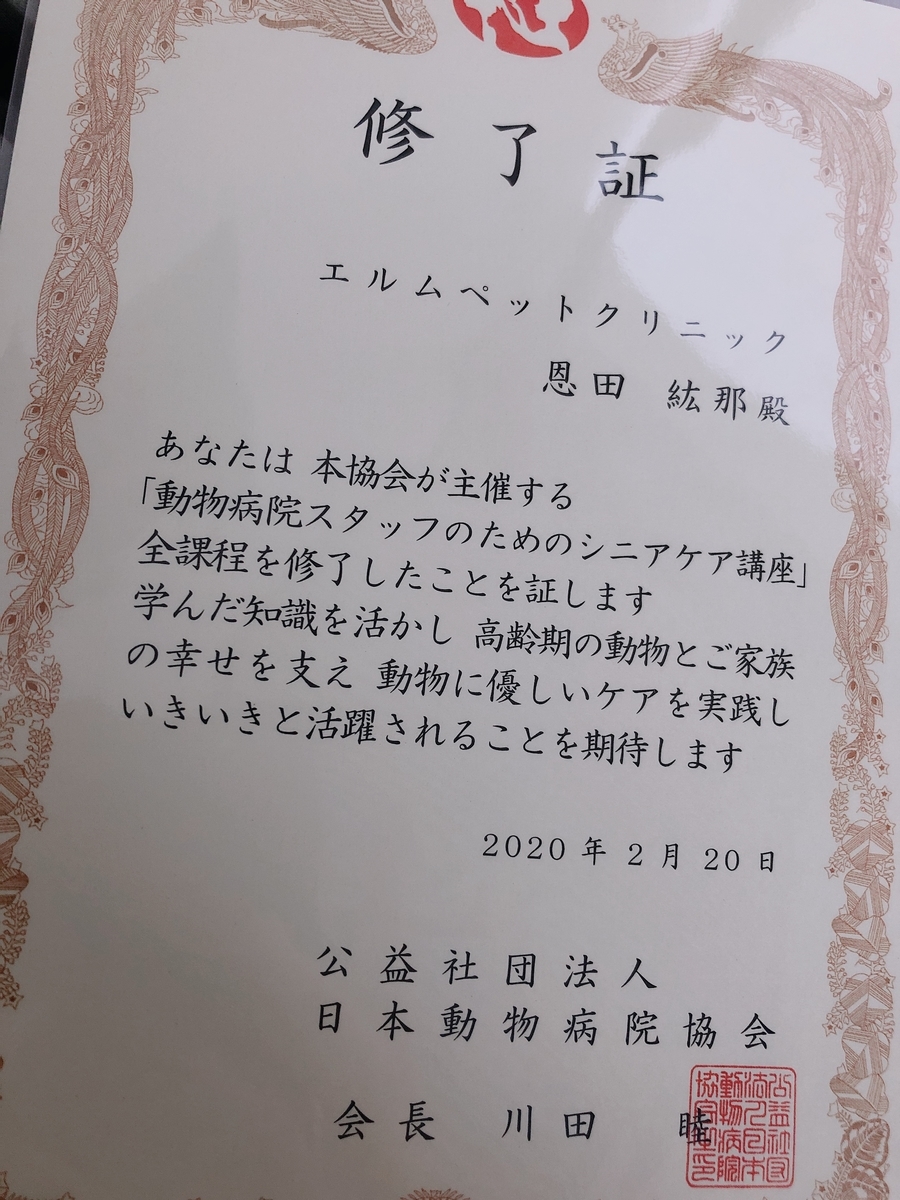 修了証
エルムペットクリニック
恩田 紘那殿
あなたは 本協会が主催する
「動物病院スタッフのためのシニアケア講座」
全課程を修了したことを証します
学んだ知識を活かし 高齢期の動物とご家族
の幸せを支え 動物に優しいケアを実践し
いきいきと活躍されることを期待します
2020年2月20日
公益社団法人
日本動物病院協会
会長 川田 睦